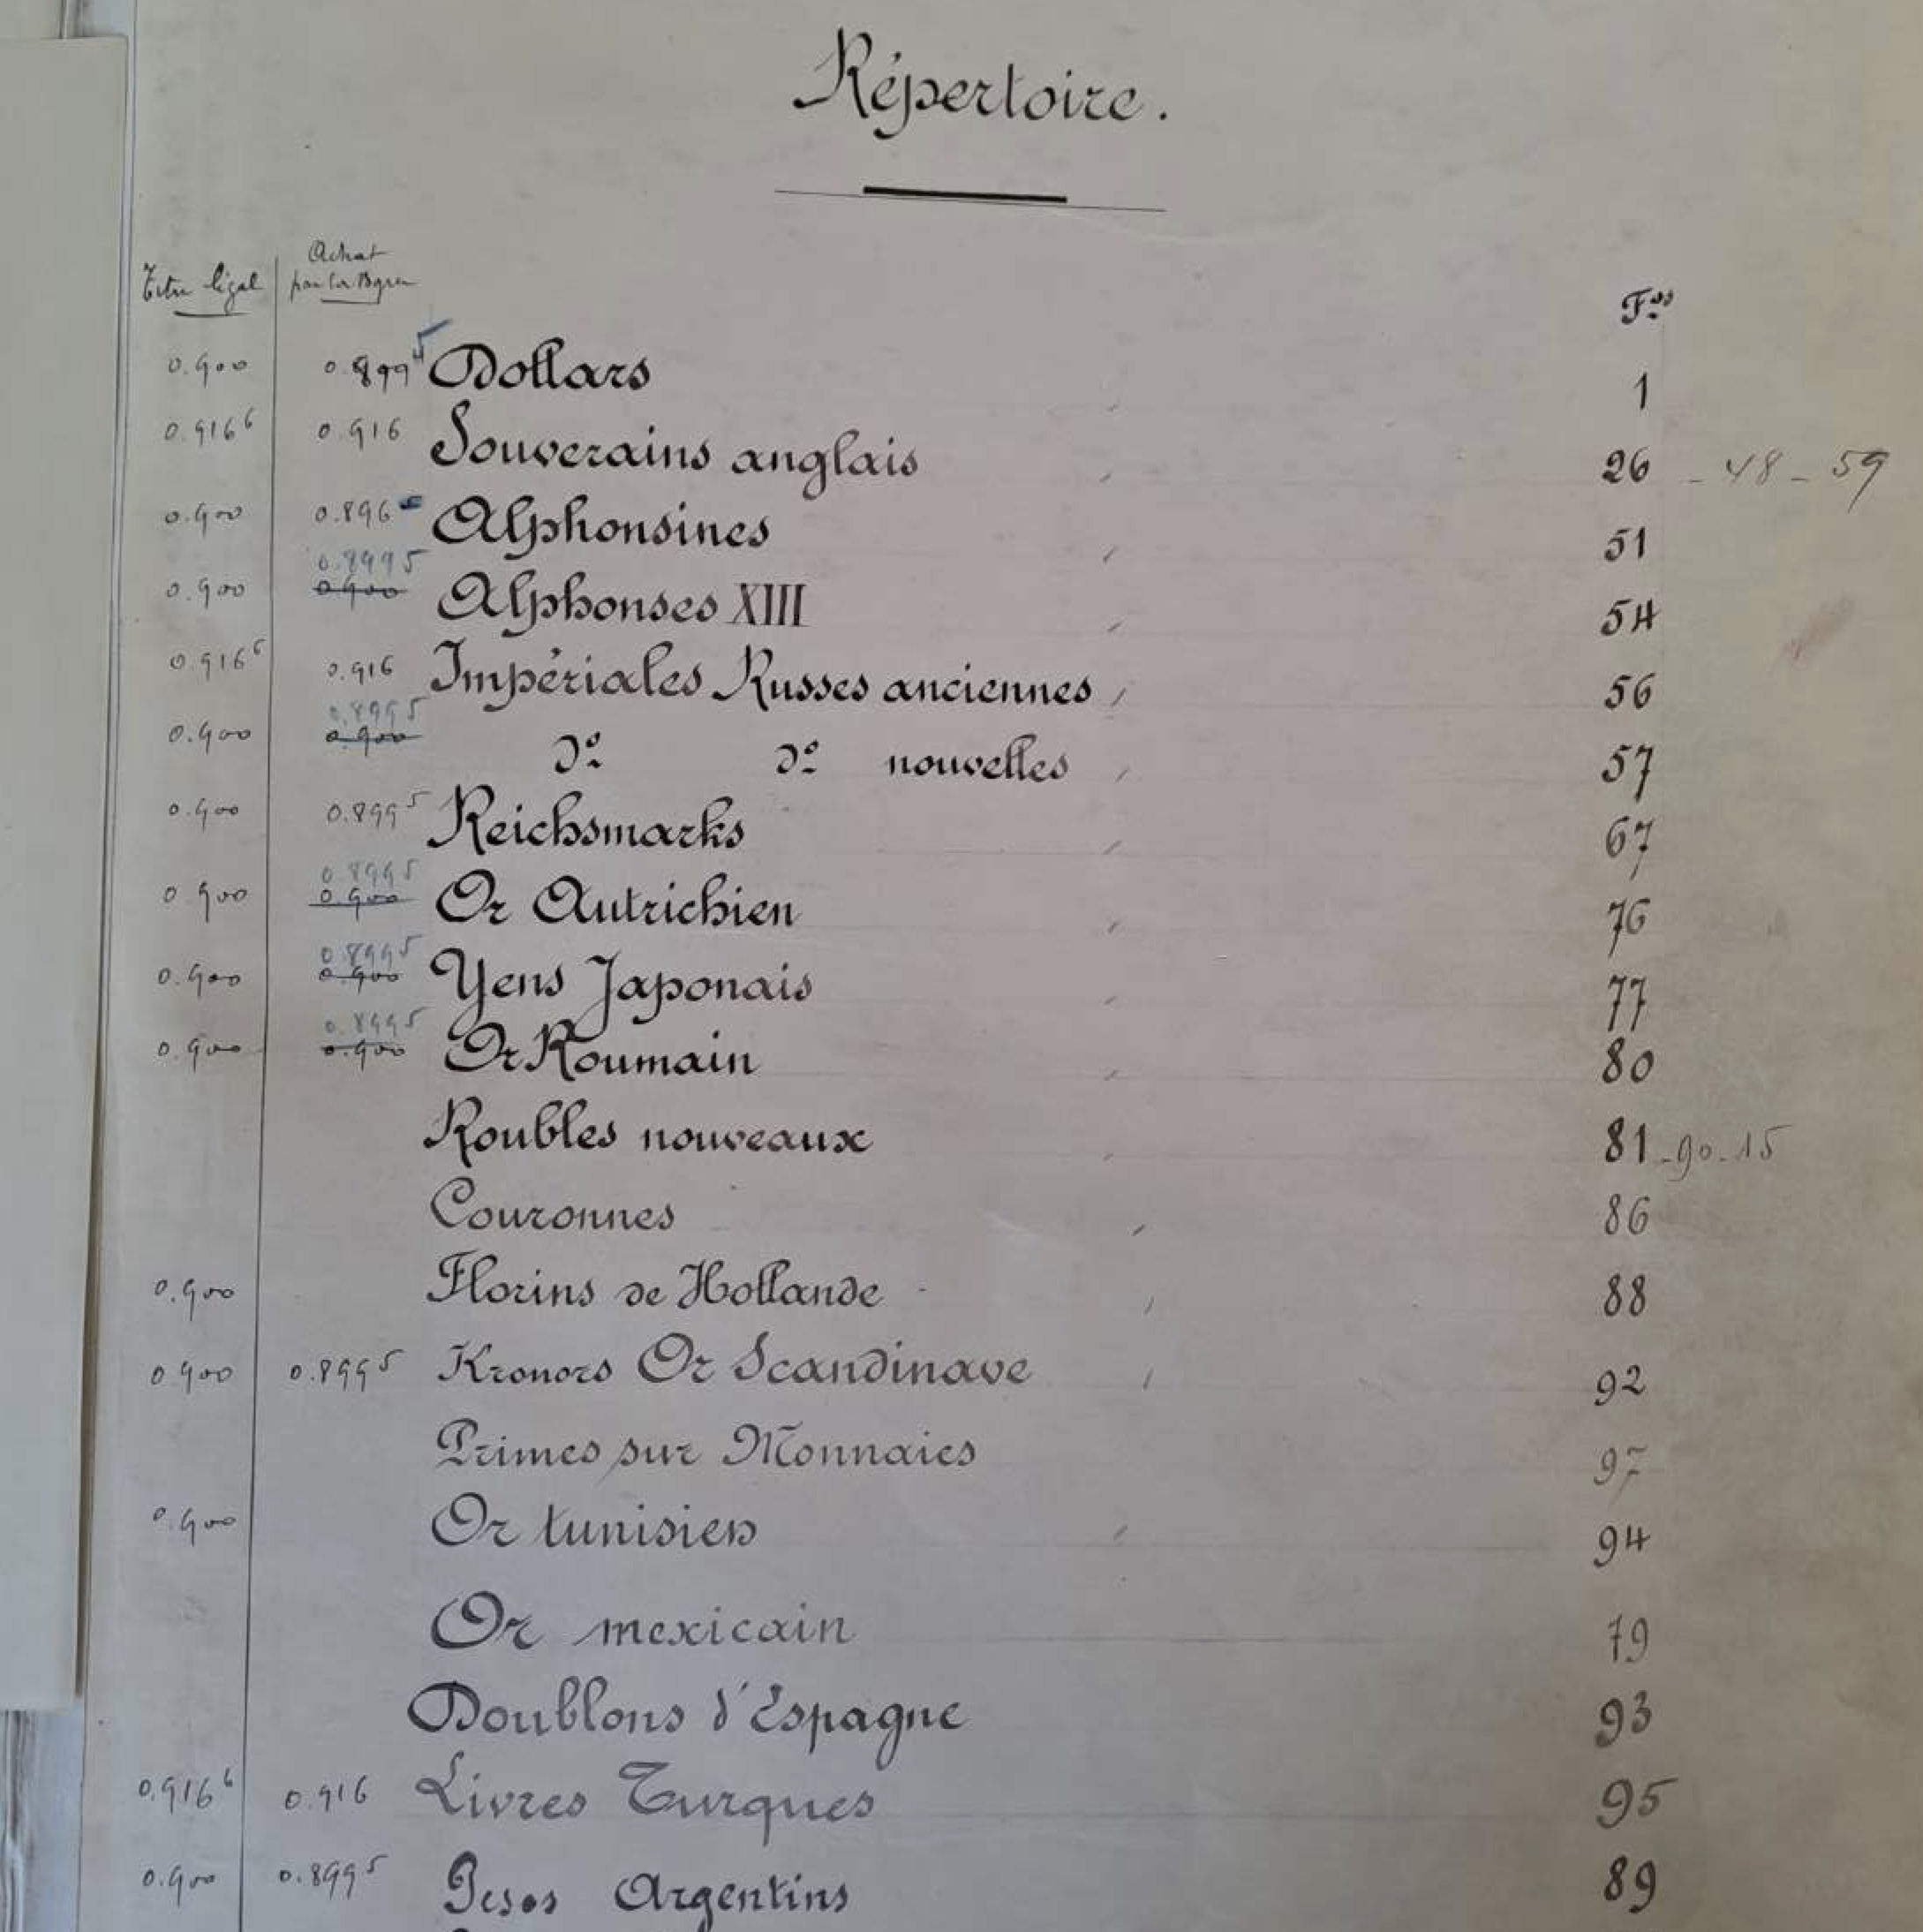 Répertoire.
Titre légal Achat par la Bque
Fos
0.900 0.8995 Dollars 1
0.9166 0.916 Souverains anglais 26 - 48 - 59
0.900 0.896 Alphonsines 51
0.8995
0.900 0.900 Alphonses XIII 54
0.9166 0.916 Impériales Russes anciennes 56
0.8995
0.900 0.900 do do nouvelles 57
0.900 0.8995 Reichsmarks 67
0.8995
0.900 0.900 Or Autrichien 76
0.8995
0.900 0.900 Yens Japonais 77
0.8995
0.900 0.900 Or Roumain 80
Roubles nouveaux 81 - 90 - 15
Couronnes 86
0.900 Florins de Hollande 88
0.900 0.8995 Kronors Or Scandinave 92
Primes sur Monnaies 97
0.900 Or tunisien 94
Or mexicain 79
Doublons d'Espagne 93
0.9166 0.916 Livres Turques 95
0.900 0.8995 Pesos Argentins 89